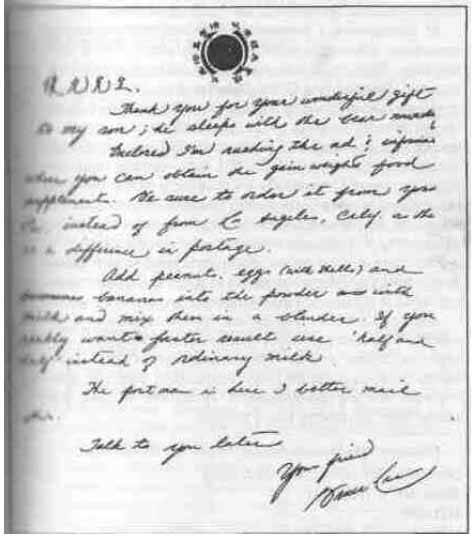 Thank you for your wonderful gift
to my son; he sleeps with the bear
Enclosed I'm sending the ad &
where you can obtain the gain weight food
supplement. Be sure to order it from
instead of from Los Angeles, City, as
is a difference in postage.
Add peanuts, eggs (with shells) and
bananas into the powder with
milk and mix them in a blender. If you
really want faster result use 'half and
half' instead of ordinary milk.
The postman is here I better mail
this.
Talk to you later
Your friend
Bruce Lee